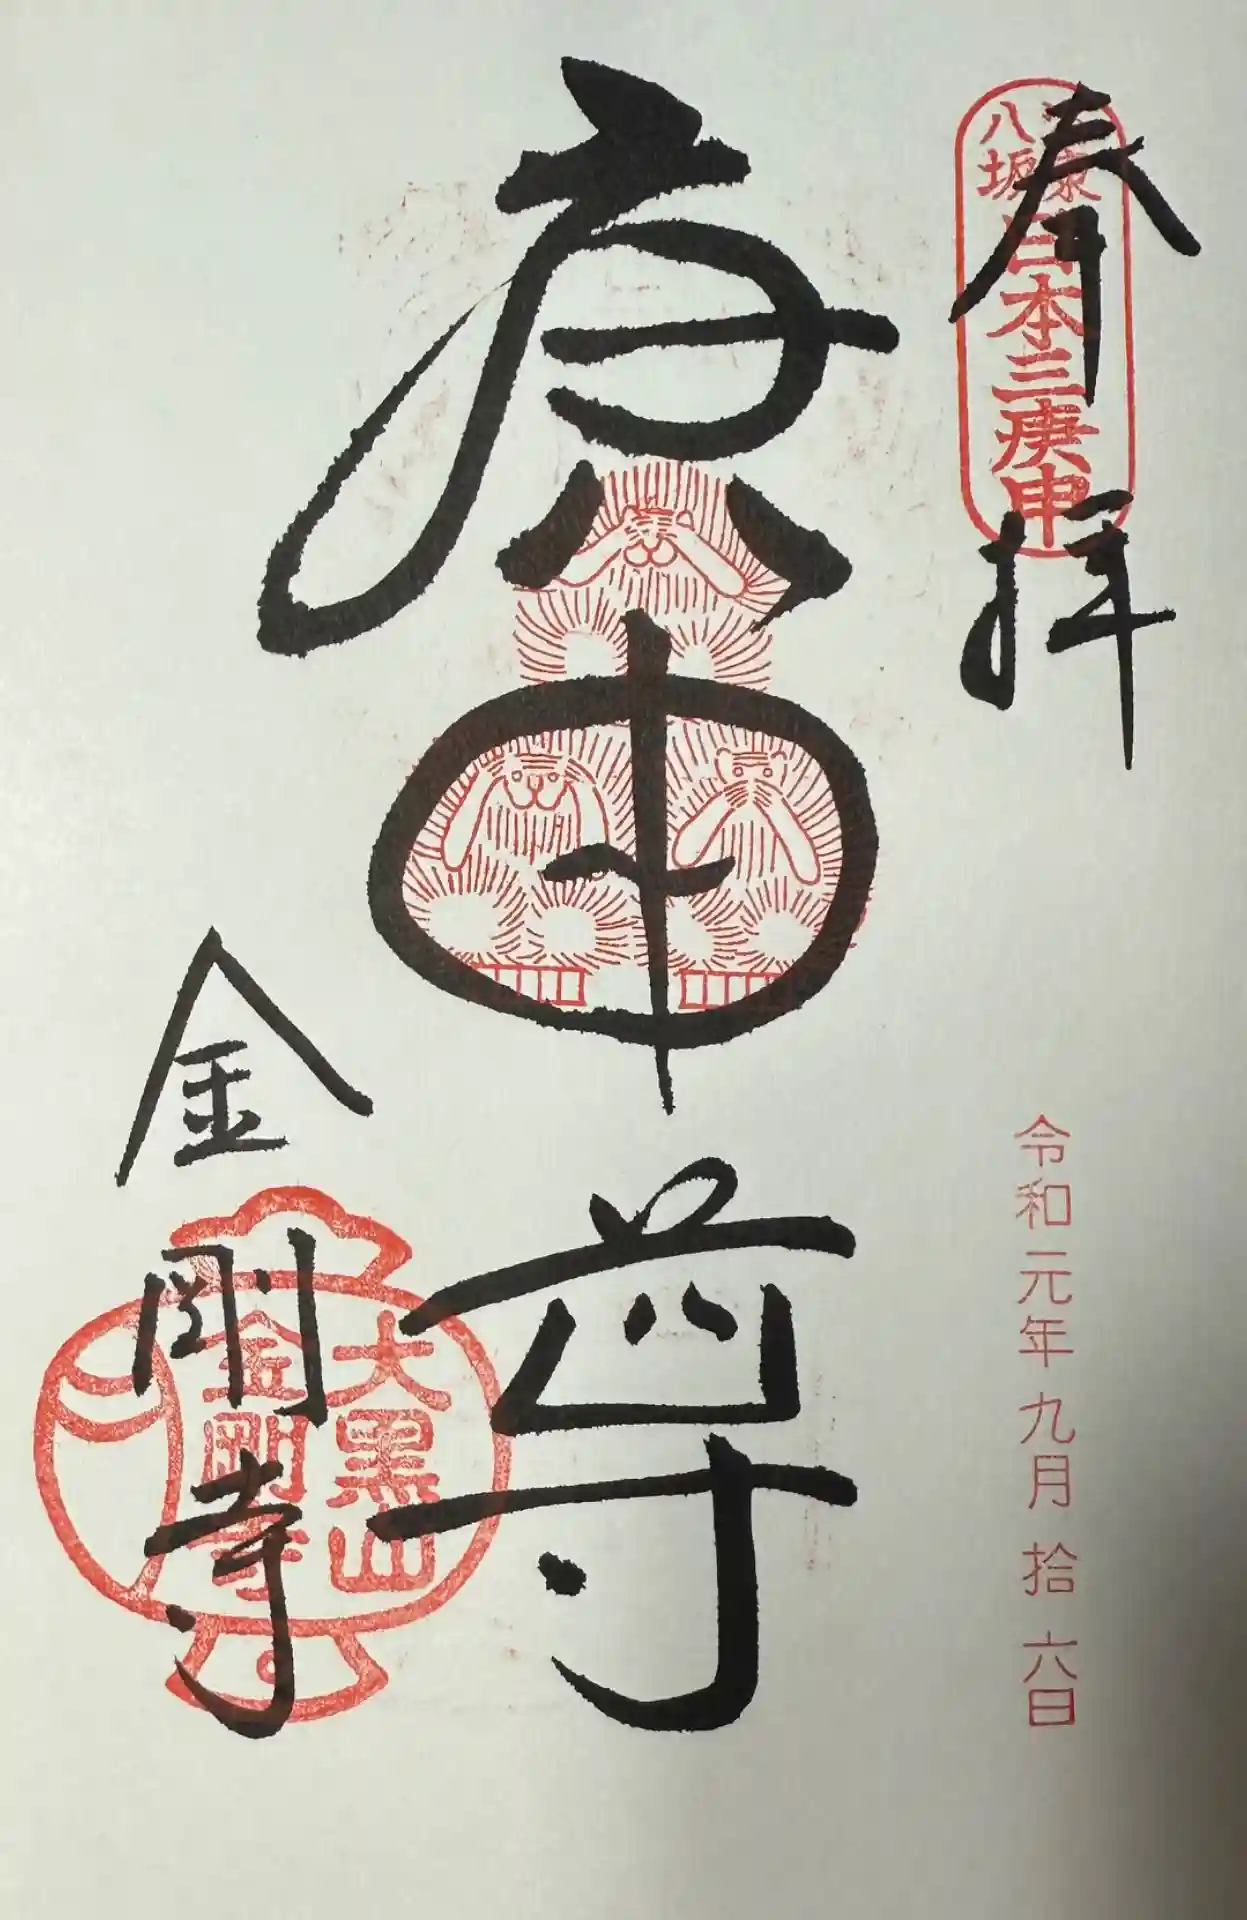 奉拝
八坂
日本三庚申
令和元年九月拾六日
庚申尊
金剛寺
大黒山
金剛寺